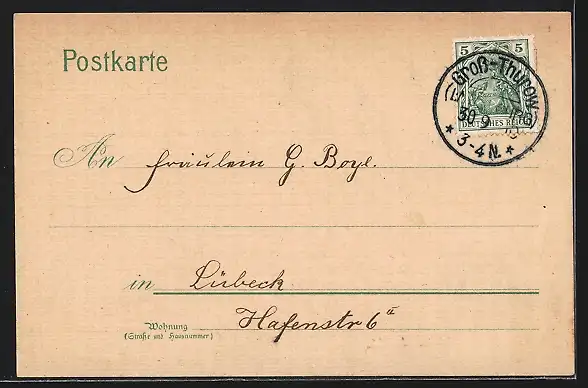 Postkarte
5 5
Groß-Thurow
30 9
DEUTSCHES REICH
* 3-4N. *
An Fräulein G. Boye.
in Lübeck
Wohnung
(Straße und Hausnummer)
Hafenstr 6a